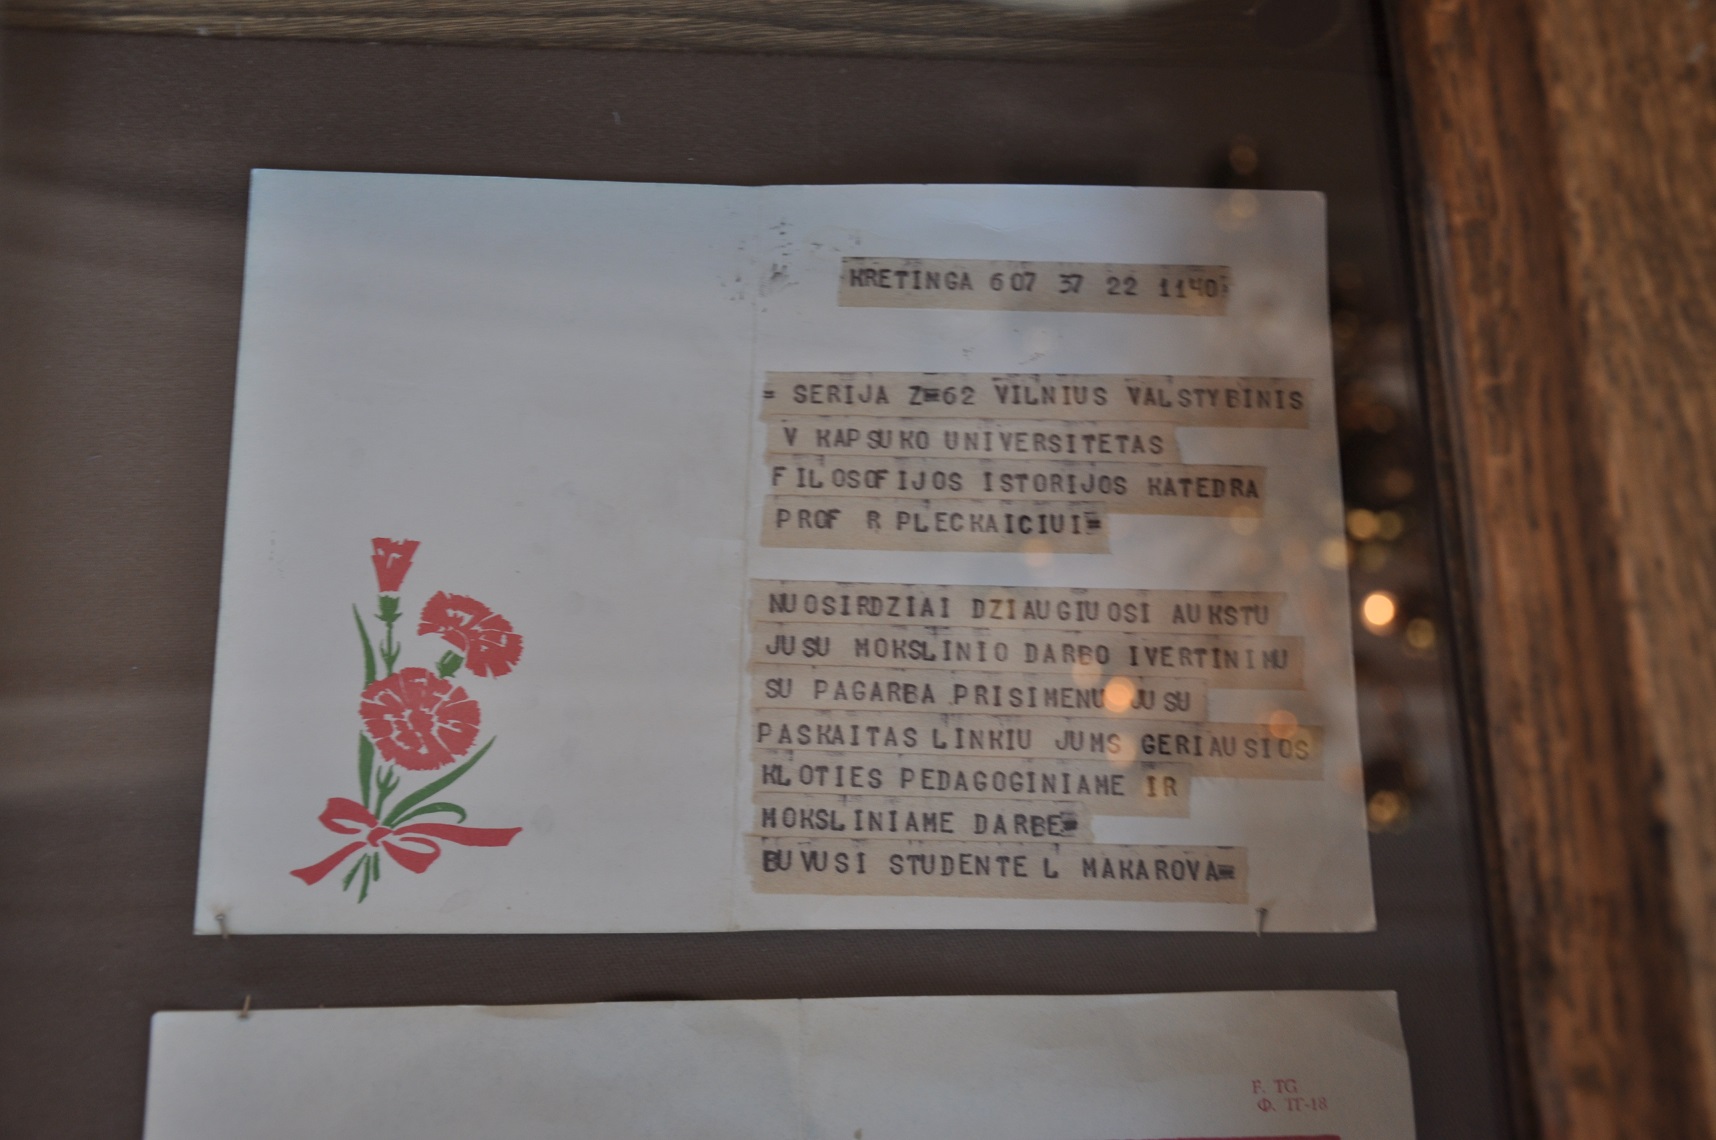 KRETINGA 607 37 22 1140=
= SERIJA Z=62 VILNIUS VALSTYBINIS
V KAPSUKO UNIVERSITETAS
FILOSOFIJOS ISTORIJOS KATEDRA
PROF R PLECKAICIUI=
NUOSIRDZIAI DZIAUGIUOSI AUKSTU
JUSU MOKSLINIO DARBO IVERTINIMU
SU PAGARBA PRISIMENU JUSU
PASKAITAS LINKIU JUMS GERIAUSIOS
KLOTIES PEDAGOGINIAME IR
MOKSLINIAME DARBE=
BUVUSI STUDENTE L MAKAROVA=
F. TG
Ф. ТГ-18